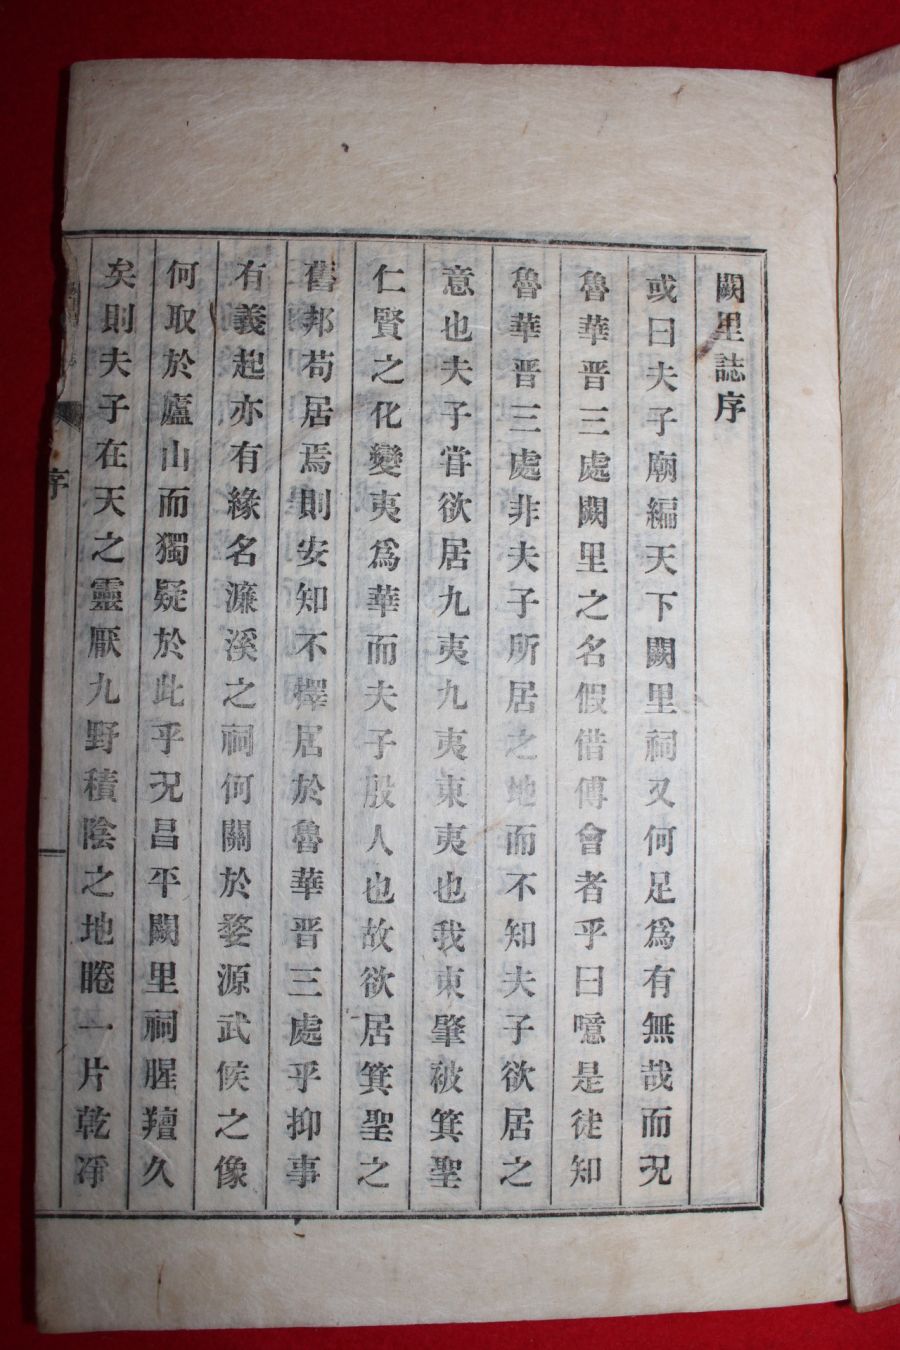 闕里誌序
或曰夫子廟編天下闕里祠又何足爲有無哉而况
魯華晋三處闕里之名假借傅會者乎曰噫是徒知
魯華晋三處非夫子所居之地而不知夫子欲居之
意也夫子甞欲居九夷九夷東夷也我東肇被箕聖
仁賢之化變夷爲華而夫子殷人也故欲居箕聖之
舊邦苟居焉則安知不擇居於魯華晋三處乎抑事
有義起亦有緣名濂溪之祠何關於婺源武侯之像
何取於廬山而獨疑於此乎况昌平闕里祠腥羶久
矣則夫子在天之靈厭九野積陰之地睠一片乾凈
序